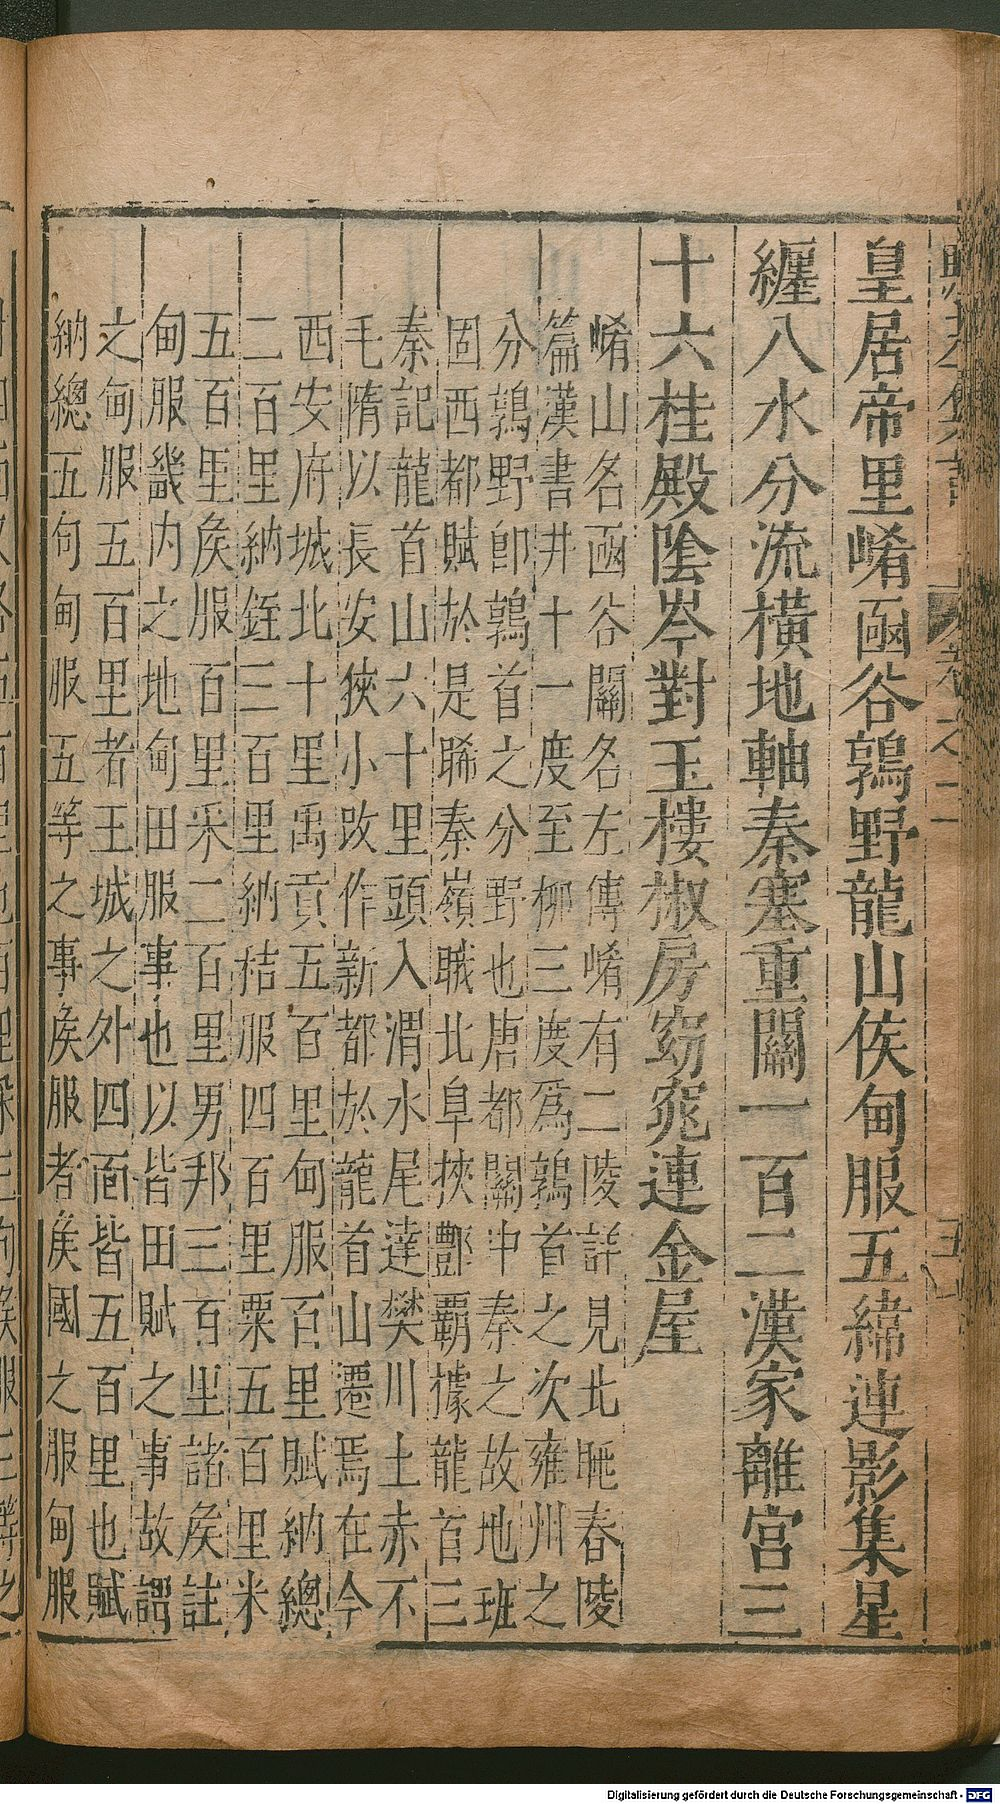 皇居帝里崤函谷鶉野龍山侯甸服五緯連影集星
纏八水分流橫地軸秦塞重關一百二漢家離宮三
十六桂殿陰岑對玉樓椒房窈窕連金屋
崤山名函谷關名左傳崤有二陵詳見北眺舂陵
篇漢書井十一度至柳三度爲鶉首之次雍州之
分鶉野卽鶉首之分野也唐都關中秦之故地班
固西都賦於是睎秦嶺睋北阜挾酆霸據龍首三
秦記龍首山六十里頭入渭水尾達樊川土赤不
毛隋以長安狹小改作新都於龍首山遷焉在今
西安府城北十里禹貢五百里甸服百里賦納總
二百里納銍三百里納秸服四百里粟五百里米
五百里矦服百里采二百里男邦三百里諸矦註
甸服畿内之地甸田服事也以皆田賦之事故謂
之甸服五百里者王城之外四面皆五百里也賦
納總五句甸服五等之事矦服者矦國之服甸服
卷之二
五
Digitalisierung gefördert durch die Deutsche Forschungsgemeinschaft - DFG